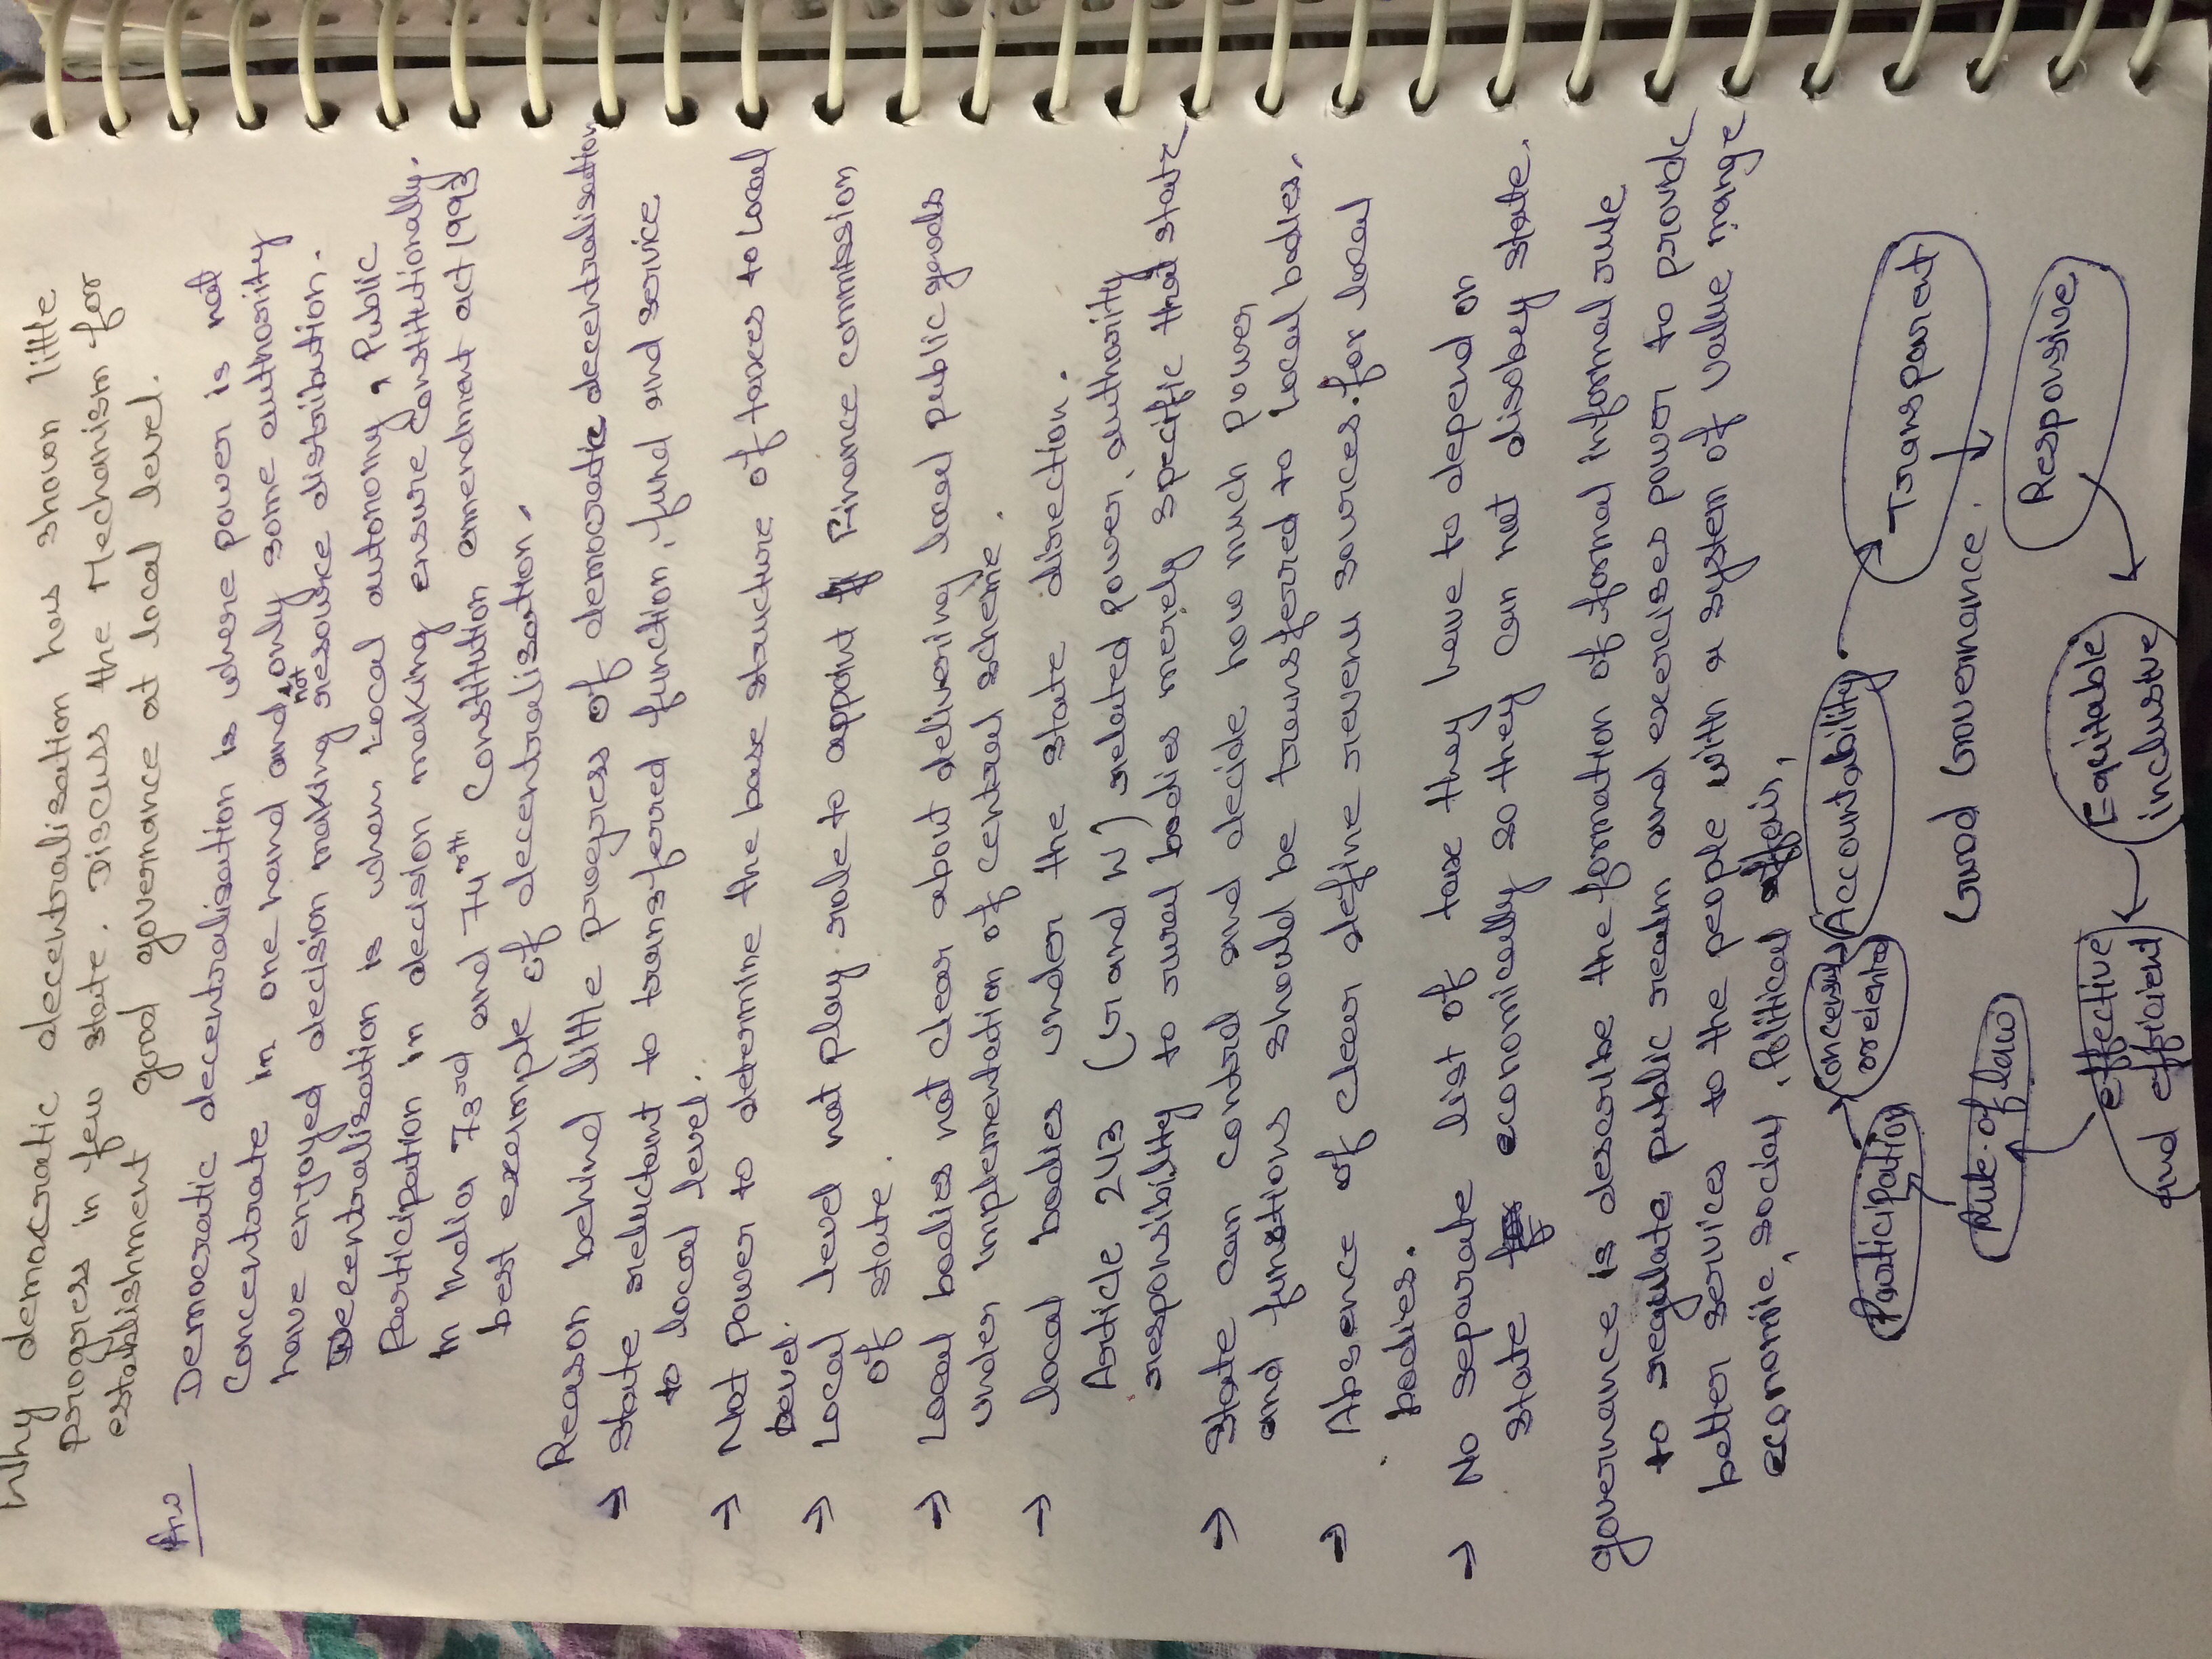 Why democratic decentralisation has shown little
progress in few state. Discuss the Mechanism for
establishment good governance at local level.
Ans
Democratic decentralisation is where power is not
Concentrate in one hand and only some authority
have enjoyed decision making not resource distribution.
Decentralisation is when Local autonomy, Public
Participation in decision making ensure Constitutionally.
In India 73rd and 74th Constitution amendment act 1993
best example of decentralisation.
Reason behind little progress of democratic decentralisation
→ State reluctant to transferred function, fund and service
to local level.
→ Not power to determine the base structure of taxes to Local
level.
→ Local level not play role to appoint Finance commission
of state.
→ Local bodies not clear about delivering local public goods
under implementation of central scheme.
→ local bodies under the state direction.
Article 243 (G and W) related power, authority
responsibility to rural bodies merely specific that state
→ State can control and decide how much power
and functions should be transferred to Local bodies.
→ Absence of clear define revenu sources. for local
bodies.
→ No separate list of tax they have to depend on
state economically so they can not disobey state.
Governance is describe the formation of formal informal rule
to regulate public realm and exercises power to provide
better services to the people with a system of value mange
economic, social, Political affair,
Participation
Concensus
oriented
Accountability
Transparent
Good Governance.
Rule of law
Responsive
effective
and efficient
Equitable
inclusive